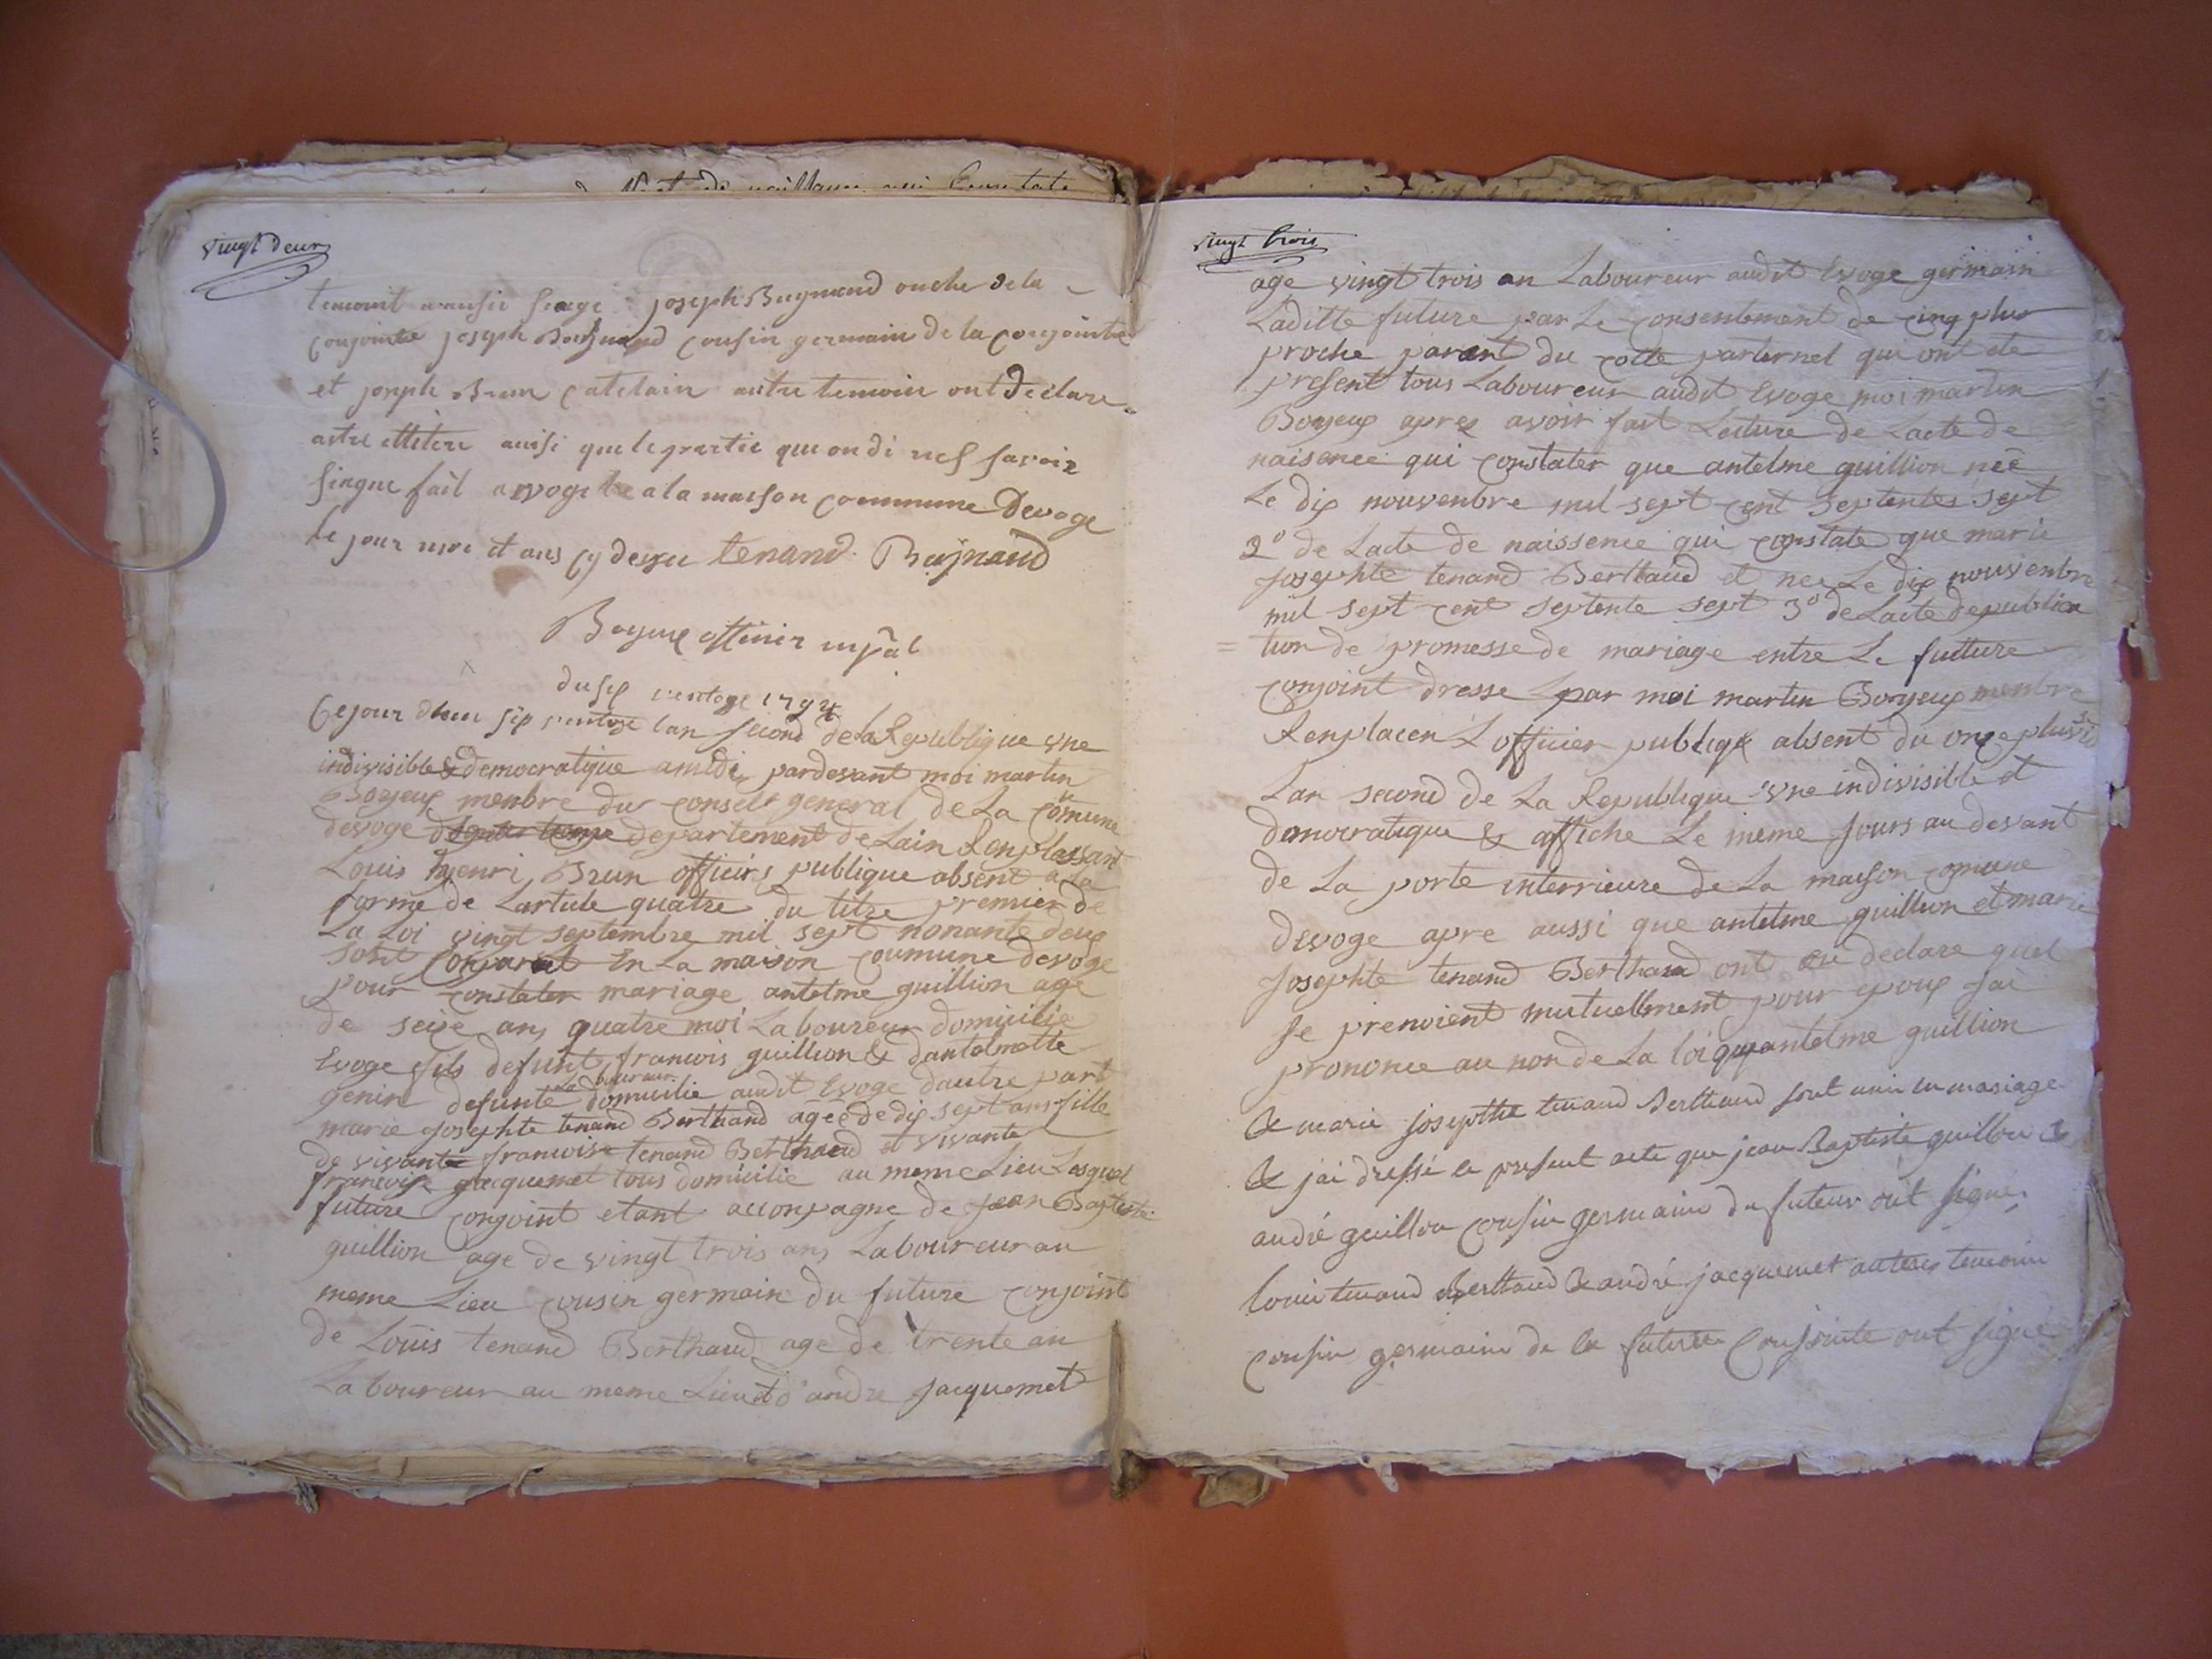 vingt deux
temoint aausii siage joseph Buynand oncle de la
conjointe joseph Buynand cousin germain de la conjointe
et joseph Brun Catelain autre temoin ont declare
que le partie qui on di
siague fait a evoge a la maison commune Devoge
le jour moi et ans cy dessu tenand Buynand
Boyeux offinier
du six ventoge 1794
Ce jour dhui six ventoze lan second de la Republique vne
indivisible & democratique amidi pardevant moi martin
Boyeux menbre du conseil general de La comune
devoge departement de Lain Remplassant
Louis henri Brun officies publique absent a la
forme de Lartule quatre du titre premier de
La Loi vingt septembre mil sept nonante deux
sont conparut En La maison coumune devoge
pour constater mariage antelme guillion age
de seize ans quatre moi Laboureur domicilie
Evoge fils defunt francois guillion & dantelmette
genin defunte Laboureur domicilie audit Evoge dautre part
marie Josephte tenand Berthaud agée de dix sept ans fille
de vivante francoise tenand Berthaud et vivante
francoise jacquemet tous domicilie au meme Lieu Lesquel
future conjoint etant acconpagne de jean Baptiste
guillion age de vingt trois ans Laboureur au
meme Lieu cousin germain du future conjoint
de Loüis tenand Berthaud age de trente an
Laboureur au meme Lieu et d'andre Jacquemet
vingt trois
age vingt trois an Laboureur audit Evoge germain
Laditte future par Le consentement de cinq plus
proche parent du cotte parternel qui ont ete
present tous Laboureur audit Evoge moi martin
Boyeux aprex avoir fait Lecture de Lacte de
naisence qui constater que antelme guillion neé
Le dix nouvenbre mil sept cent septentes sept
2º de Lacte de naissence qui constate que marie
Josephte tenand Berthaud et nee Le dix nouvenbre
mil sept cent septente sept 3º de Lacte de publica
= tion de promesse de mariage entre Le future
conjoint dresse par moi martin Boyeux menbre
Renplacen L officier publique absent du onze pluvio
Lan second de La Republique vne indivisible et
democratique & affiche Le meme Jours au devant
de La porte interrieure de La maison comune
devoge apre aussi que antelme guillion et marie
Josephte tenand Berthaud ont eu declare quel
se prenoient mutuellment pour epoux Jai
prononce au non de La loi que antelme guillion
& marie josepthe tenand Berthaud sont unis en mariage
& j'ai dressé le present acte que jean Baptiste guillon &
andré guillon cousin germains du futeur ont signé,
louis tenand Berthaud & andré jacquemet autres temoins
cousin germains de la future Conjointe ont signé